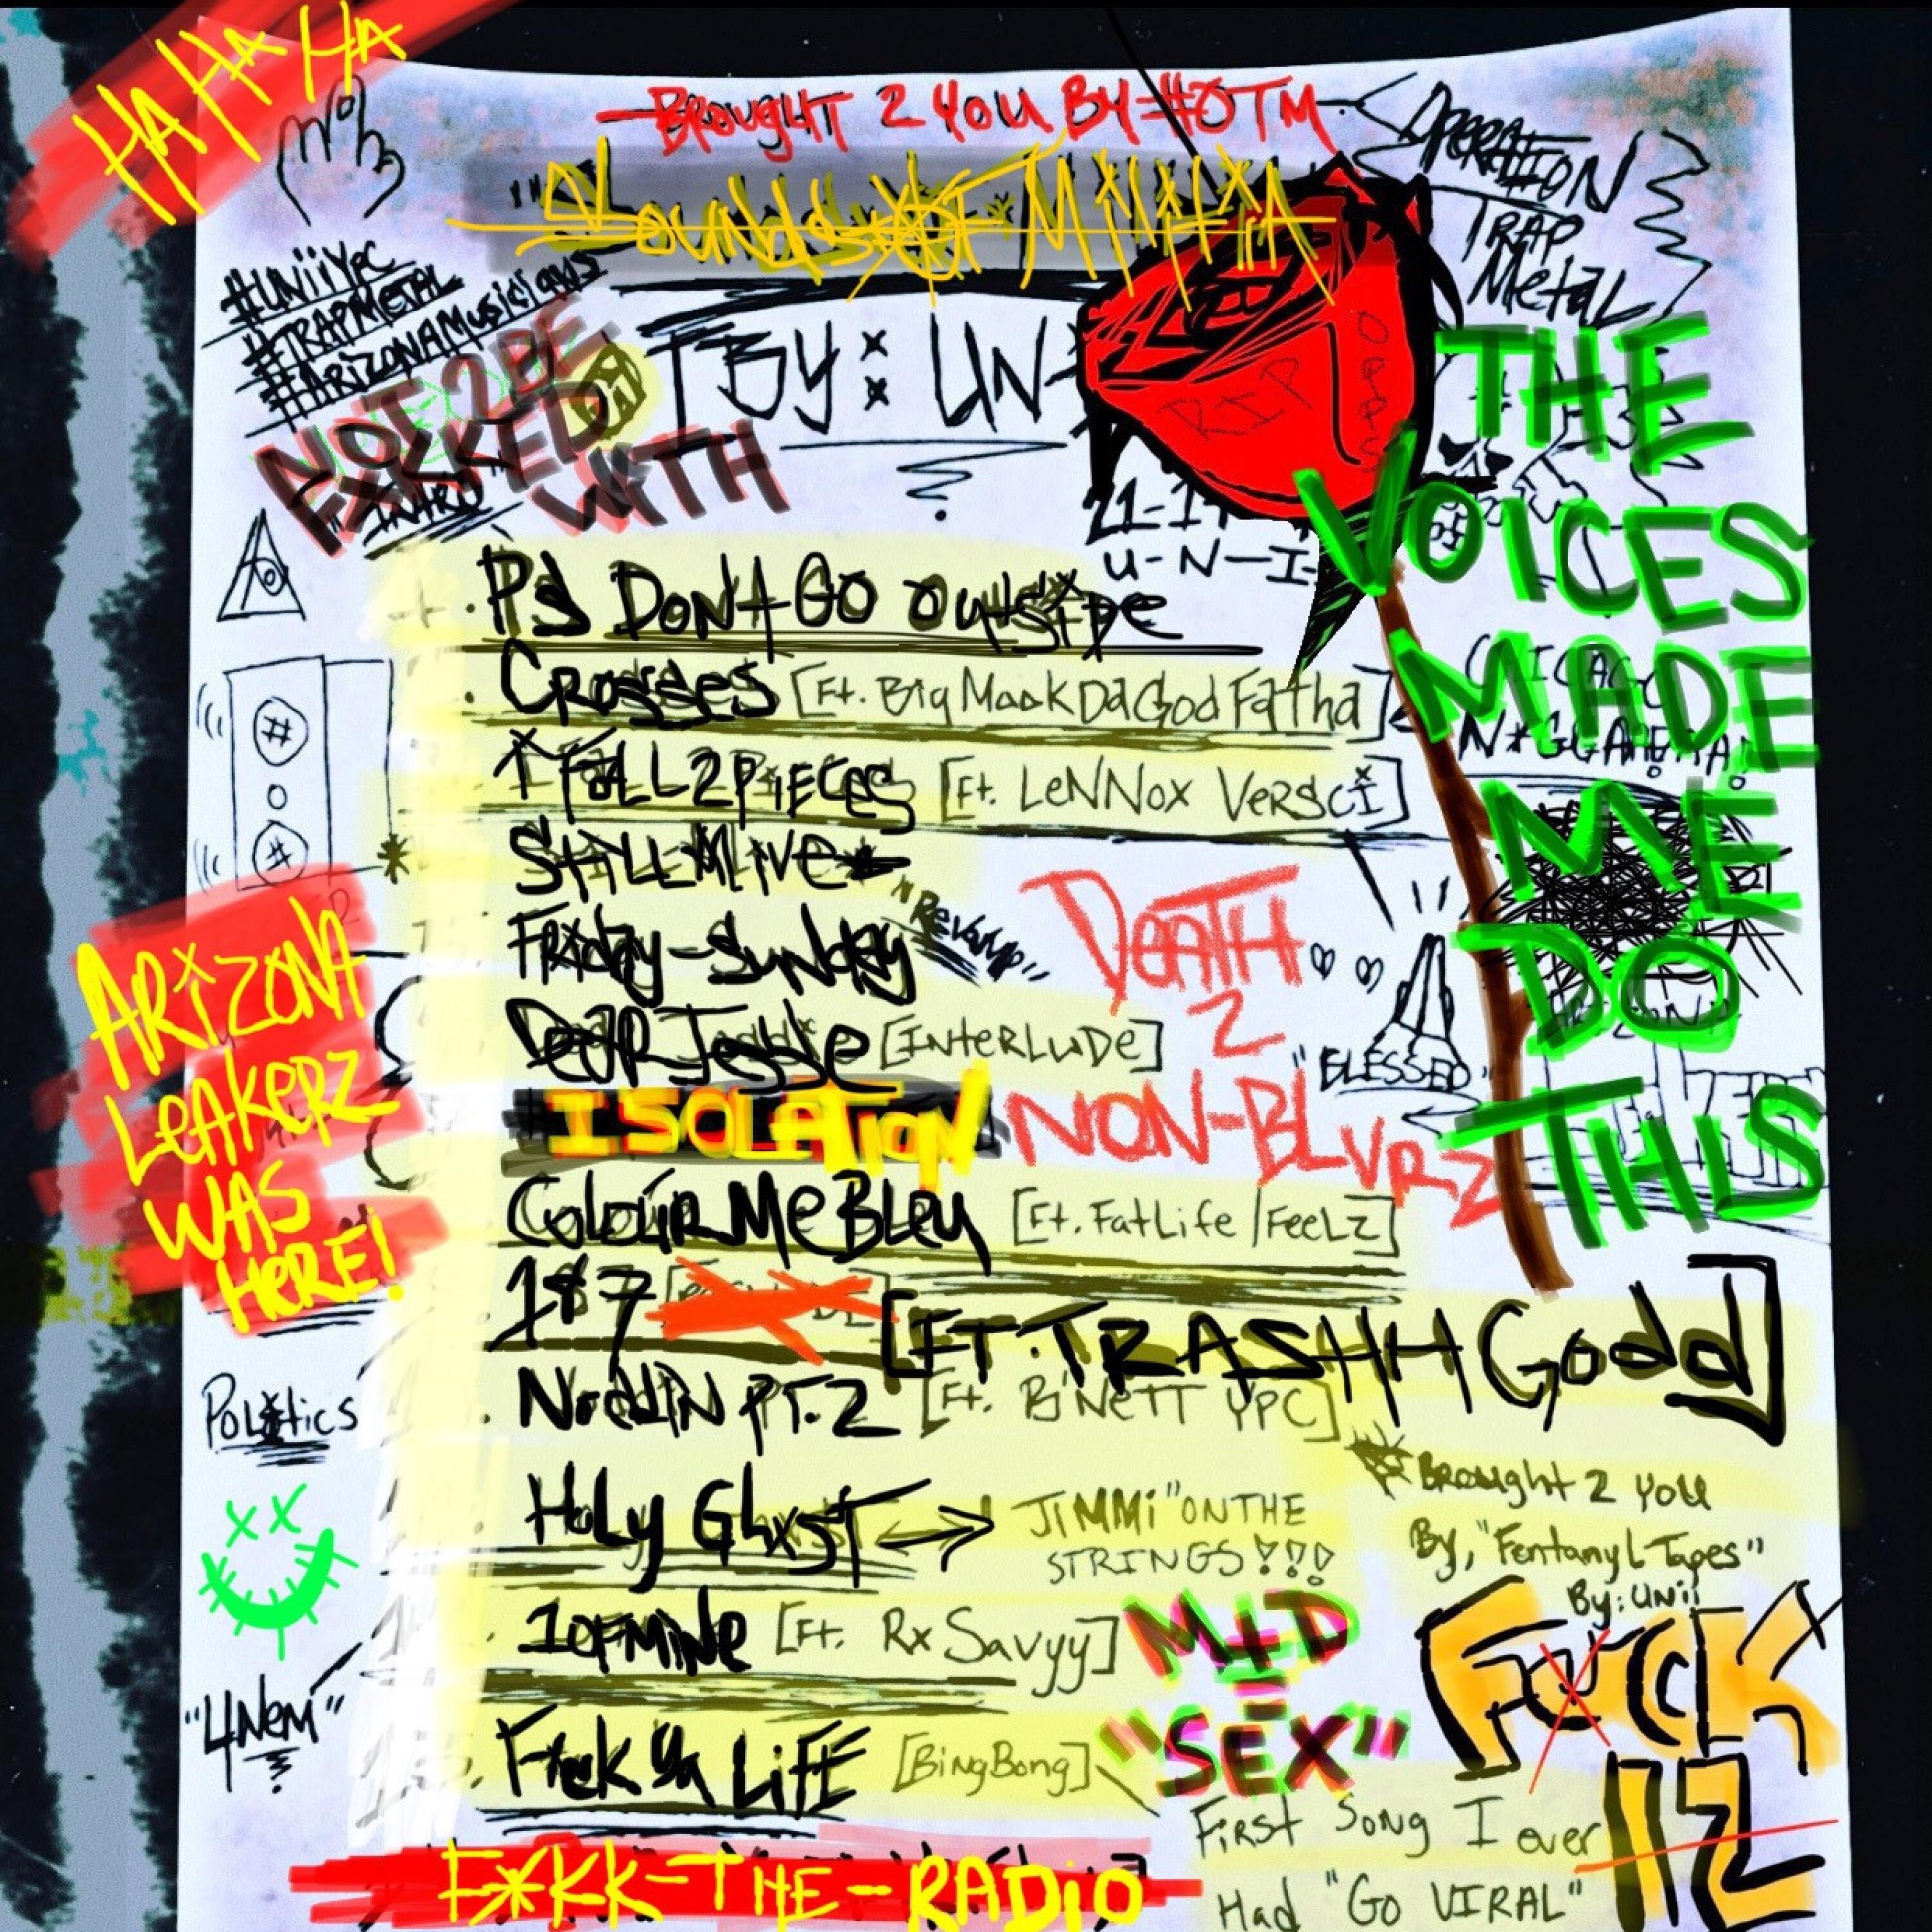 HA HA HA HA
BROUGHT 2 YOU BY #OTM
"Sounds Of Militia
OPERATION
TRAP
Metal
#UNiiYPC
#TRAPMETAL
#ARIZONAMusicians
NOT 2 BE
FXCKED
WITH
"INTRO"
BY: UN
RIP
U-N-I-
THE
VOICES
MADE
ME
DO
THIS
. PS DON't GO OutsiDe
. Crosses [Ft. Big MaakDaGodFatha]
CHICAGO
N*GGAH!YA!
I FALL 2 PiECES [Ft. LeNNox VerscI]
StiLL ALive
Friday-Sunday "Revamp"
DEATH
2
NON-BLVRZ
Dear Jesse [InterLuDe]
"BLESSED"
ISOLATiON
ARiZONA
LeAKerZ
WAS
HeRE!
Colour Me Bleu [Ft. FatLife/FeeLz]
187 [FT. TRASHH Godd]
NoddiN PT. 2 [Ft. B'NeTT YPC]
PoLitics
HoLy GhxsT JIMMi" ON THE
STRINGS!!!
Brought 2 you
By, "FentanyL Tapes"
By: UNii
1OFMiNe [Ft. Rx Savyy]
M+D
=
"SEX"
"4Nem"
F*ck Ya LiFE [BingBong]
FuCK
12
First Song I ever
Had "Go VIRAL"
F*KK-THE-RADiO